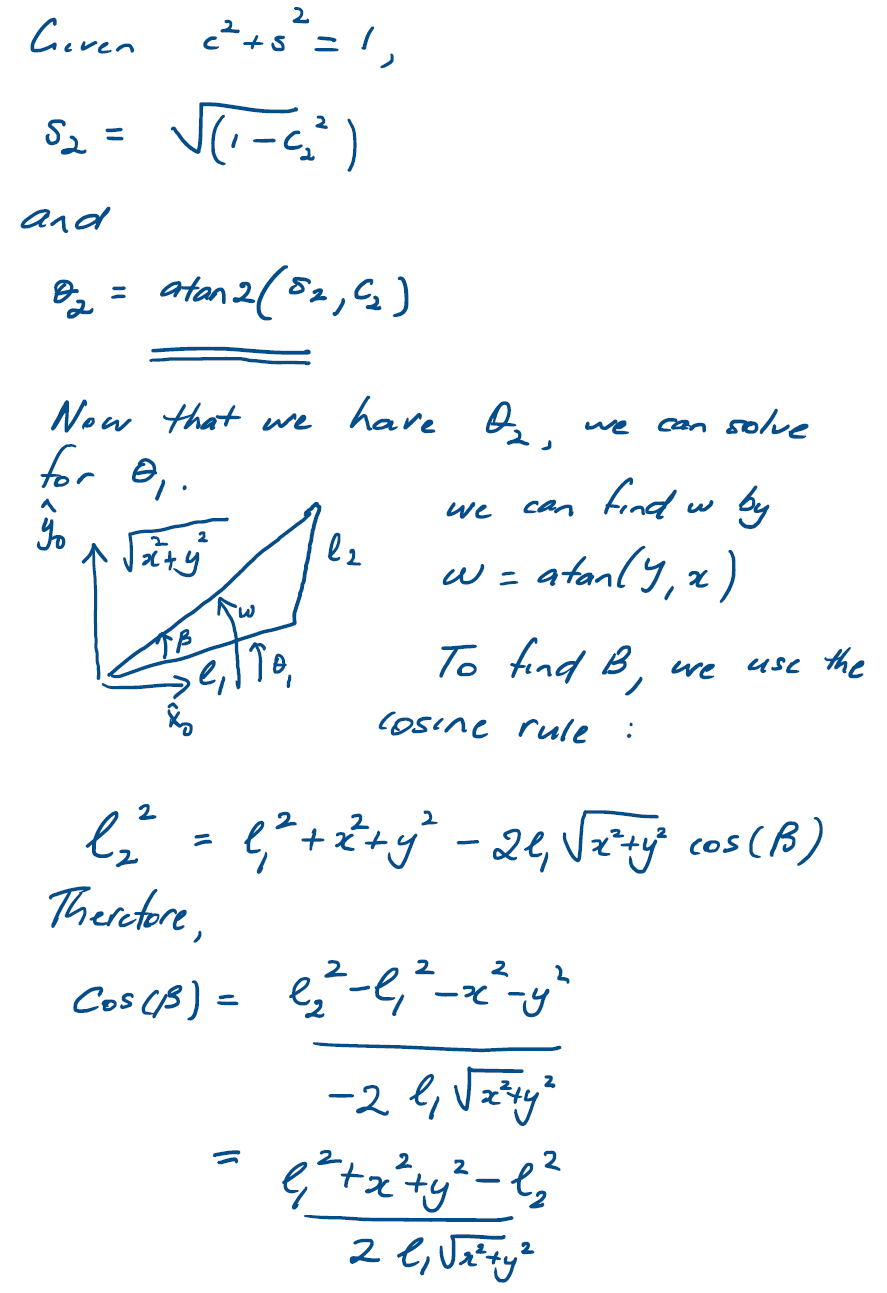 Given c²+s²=1,
s₂ = √(1-c₂²)
and
θ₂ = atan2(s₂, c₂)
Now that we have θ₂, we can solve
for θ₁.
ŷ₀
√x²+y²
l₂
ω
β
l₁
θ₁
x̂₀
we can find ω by
ω = atan(y, x)
To find β, we use the
cosine rule :
l₂² = l₁² + x² + y² - 2l₁ √x²+y² cos(β)
Therefore,
Cos(β) = l₂² - l₁² - x² - y²
-2 l₁ √x²+y²
= l₁² + x² + y² - l₂²
2 l₁ √x²+y²